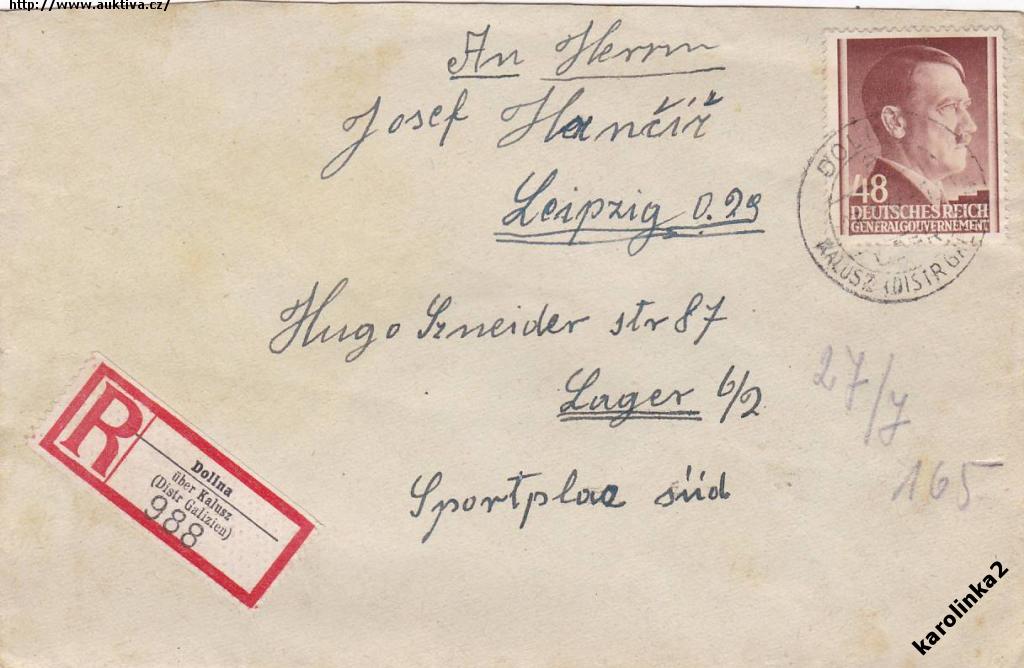 http://www.auktiva.cz/
An Herrn
Josef Hančíř
Leipzig O. 29
Hugo Szneider str 87
Lager 6/2
Sportplac süd
48
DEUTSCHES REICH
GENERALGOUVERNEMENT
KALUSZ (DISTR GAL
R
Dollna
über Kalusz
(Distr Galizien)
988
27/7
165
karolinka2